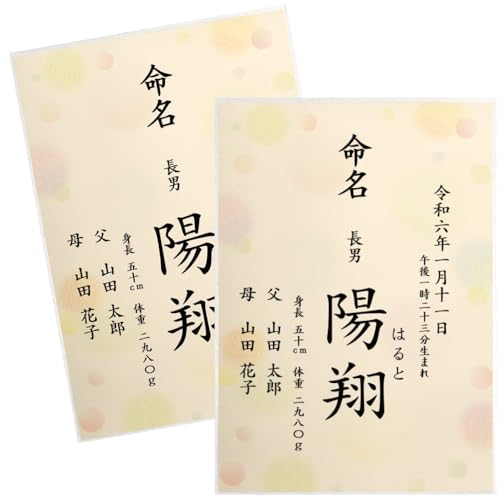 命名
長男
陽翔
身長 五十cm 体重 二九八〇g
父 山田 太郎
母 山田 花子
令和六年一月十一日
午後一時二十三分生まれ
命名
長男
陽翔
はると
身長 五十cm 体重 二九八〇g
父 山田 太郎
母 山田 花子